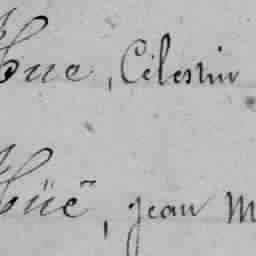 Hue, Célestin
Hüë, Jean M